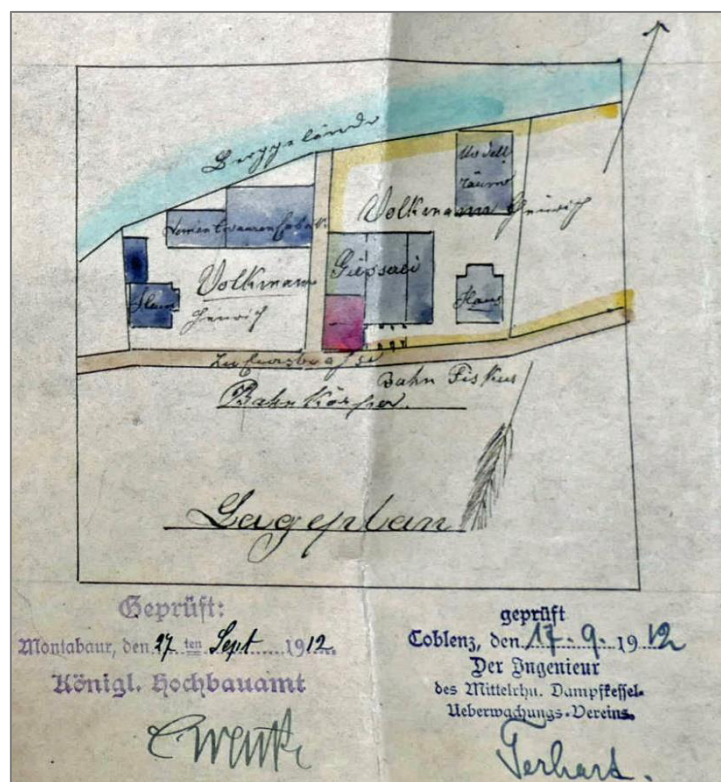 Berggelände
Modell
räume
Volkmann Heinrich
Giesserei
Volkmann
Heinrich
Haus
Haus
Zufuhrstrasse
Bahn Fiskus
Bahnkörper.
Lageplan
Geprüft:
Montabaur, den 27 ten Sept 1912.
Königl. Hochbauamt
geprüft
Coblenz, den 17.9.1912
Der Ingenieur
des Mittelrhn. Dampfkessel-
Ueberwachungs-Vereins.
Terhart.